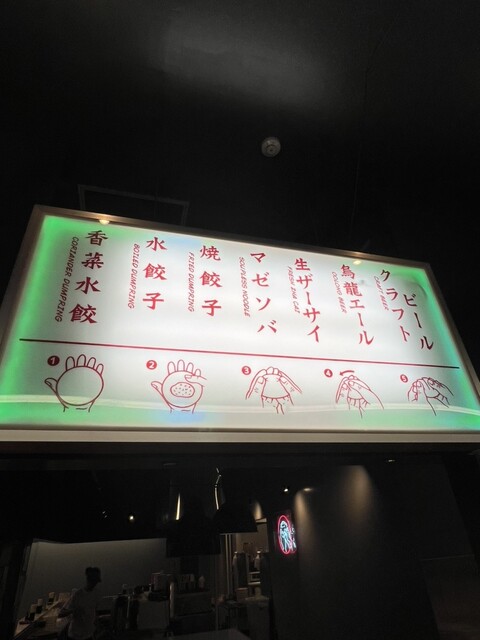 香菜水餃
CORIANDER DUMPRING
水餃子
BOILED DUMPRING
焼餃子
FRIED DUMPRING
マゼソバ
SOUPLESS NOODLE
生ザーサイ
FRESH ZHA CAI
烏龍エール
OOLONG BEER
クラフト
ビール
CRAFT BEER
1
2
3
4
5